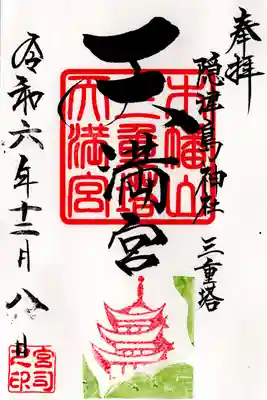 奉拝
隠津島神社 三重塔
木幡山
三重塔
天満宮
天満宮
令和六年十二月八日
宮司
之印